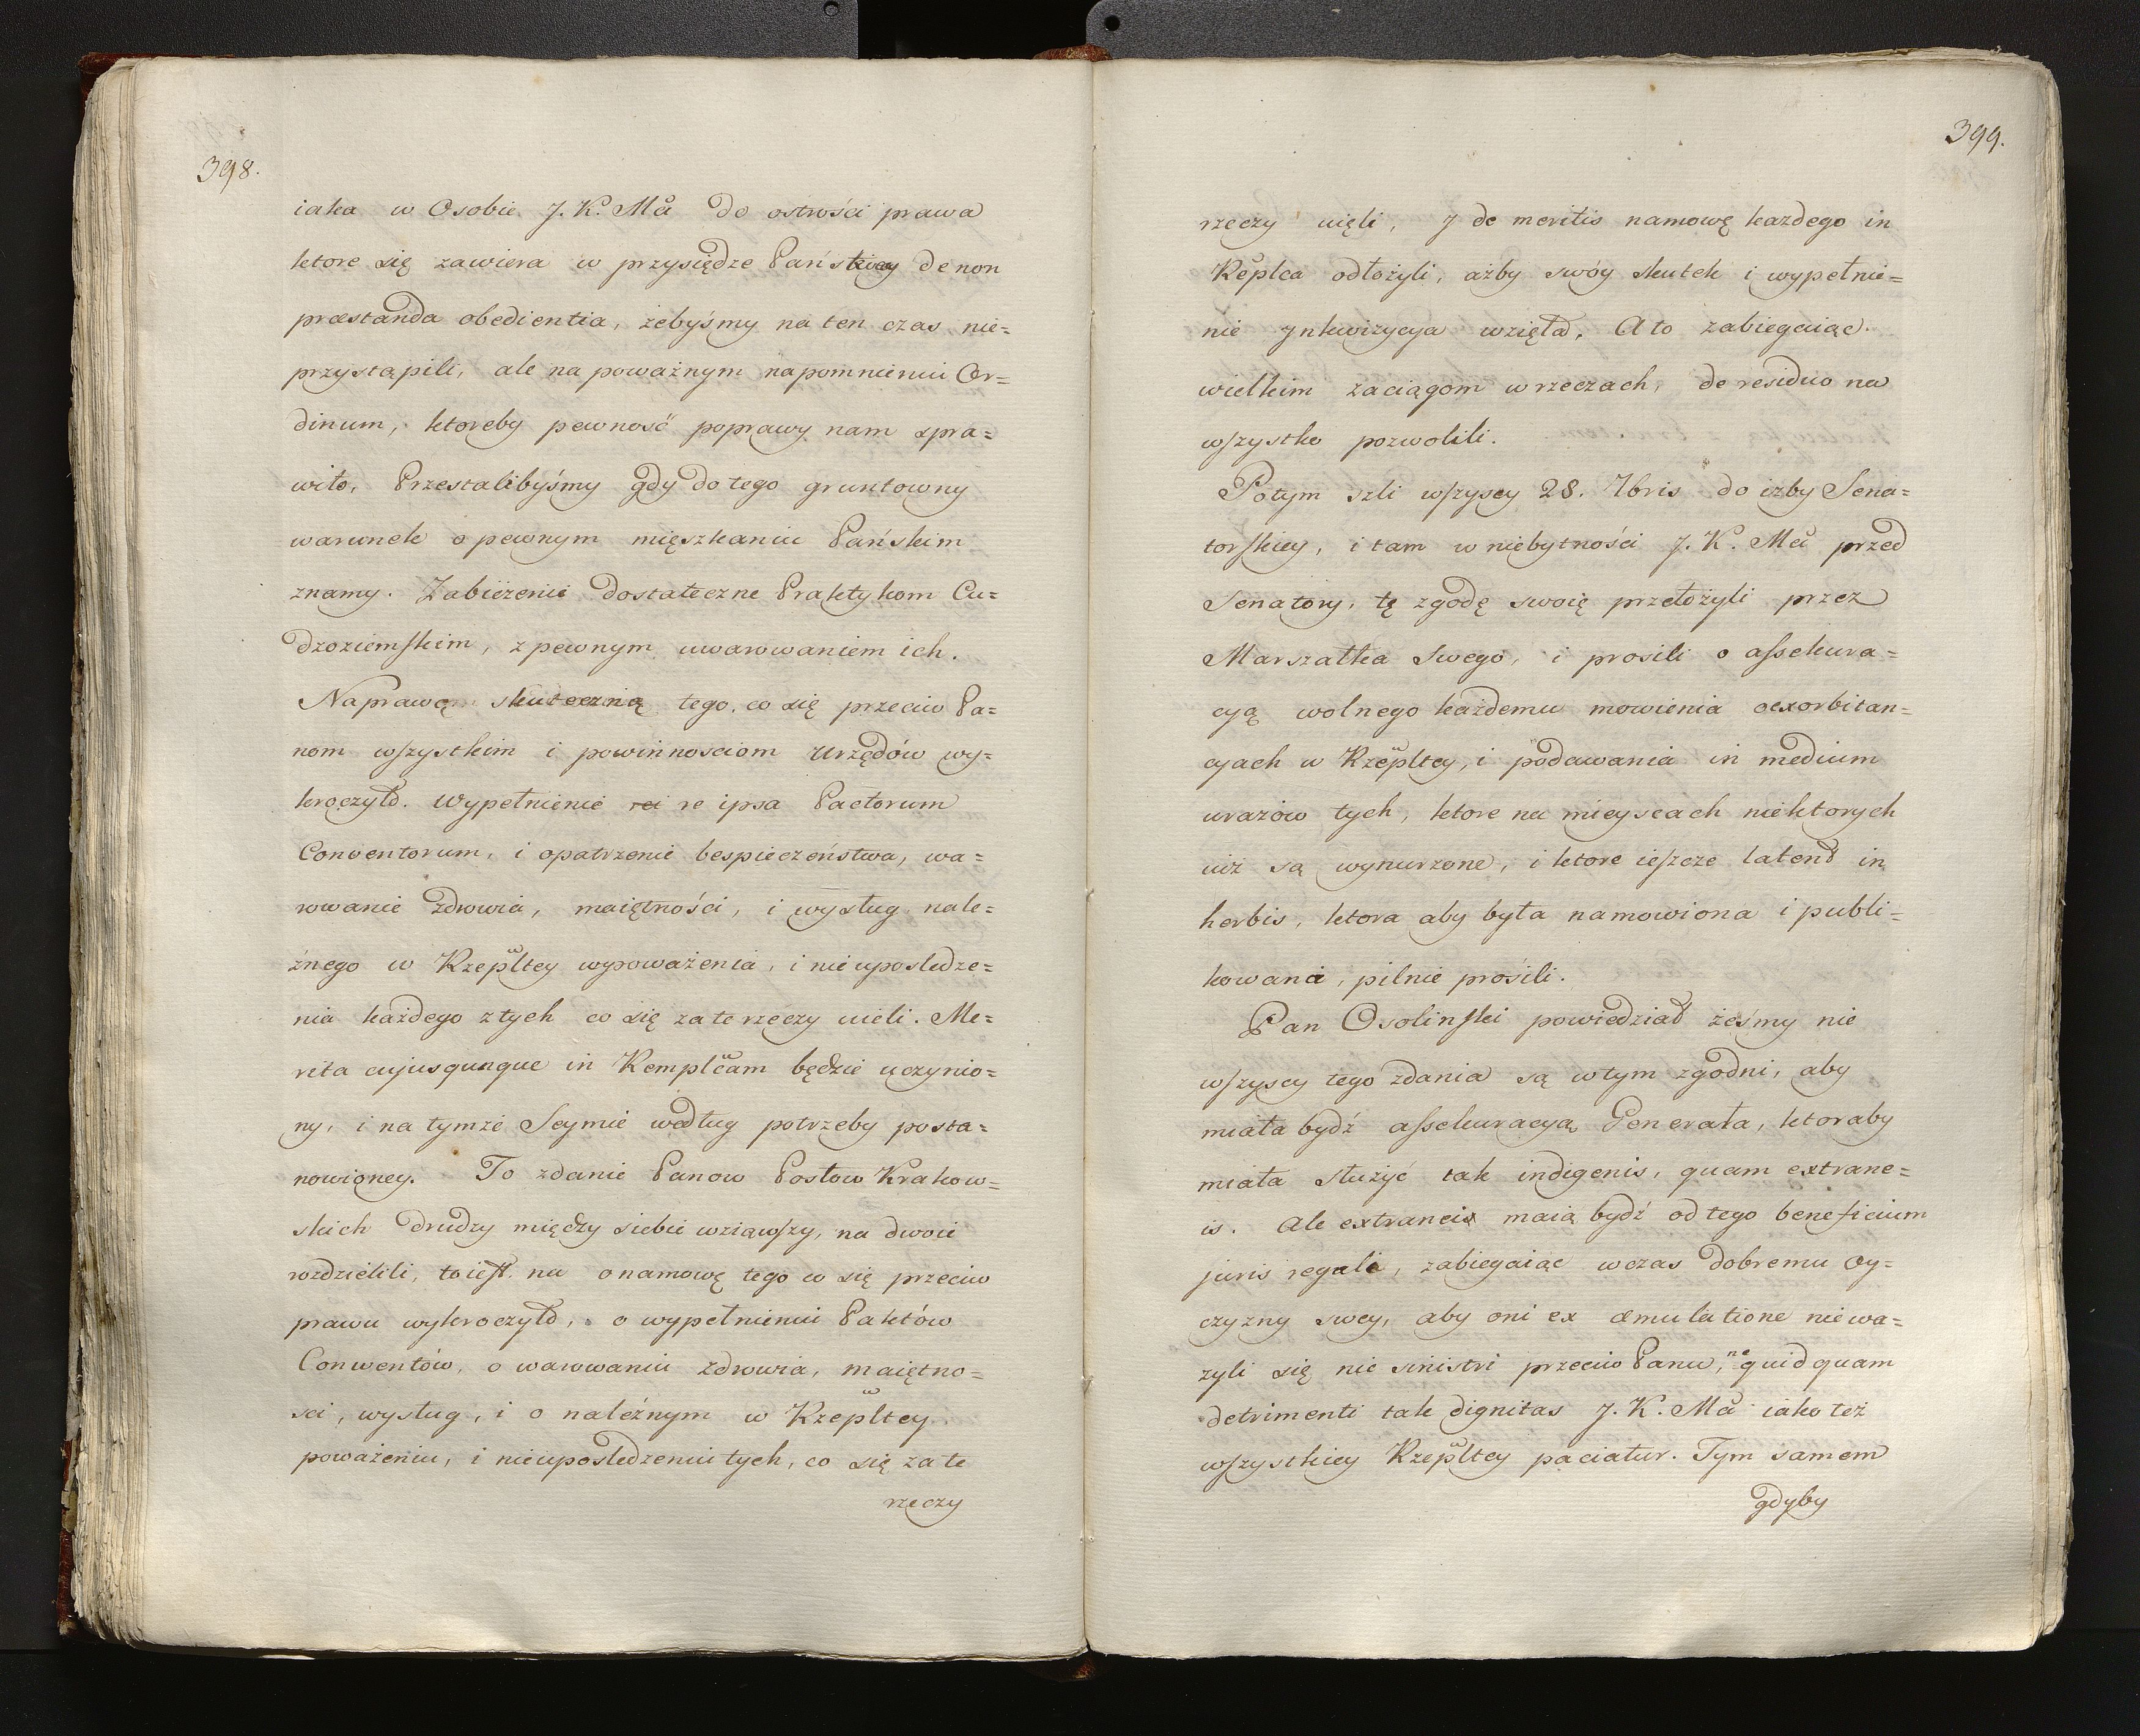 398.
iaka w Osobie J. K. Mći do ostrości prawa
ktore się zawiera w przysiędze Pańskiey de non
præstanda obedientia, żebyśmy na ten czas nie=
przystąpili, ale na poważnym napomnieniu Or=
dinum, ktoreby pewność poprawy nam spra=
wiło, Przestalibyśmy gdy do tego gruntowny
warunek o pewnym mięszkaniu Pańskim
znamy. Zabieżenie dostateczne Praktykom Cu=
dzoziemskim, z pewnym uwarowaniem ich.
Naprawę skuteczną tego, co się przeciw Pa=
nom wszystkim i powinnosciom Urzędów wy=
kroczyło. Wypełnienie re ipsa Pactorum
Conventorum, i opatrzenie bespieczeństwa, wa=
rowanie zdrowia, maiętności, i wysług nale=
żnego w Rzepltey wypoważenia, i nieuposledze=
nia każdego z tych co się za te rzeczy uieli. Me=
rita cujusqunque in Remplcam będzie uczynio=
ny, i na tymże Seymie według potrzeby posta=
nowioney. To zdanie Panow Posłow Krakow=
skich drudzy między siebie wziąwszy, na dwoie
rozdzielili, to iest. na o namowę tego co się przeciw
prawu wykroczyło, o wypełnieniu Paktów
Conwentów, o warowaniu zdrowia, maiętno=
sci, wysług, i o należnym w Rzepltey
poważeniu, i nieuposledzeniu tych, co się za te
rzeczy
399.
rzeczy uięli, J de meritis namowę każdego in
Replca odłożyli, ażby swóy skutek i wypełnie=
nie Jnkwizycya wzięła. A to zabiegaiąc
wielkim zaciągom w rzeczach, de residuo na
wszystko pozwolili.
Potym szli wszyscy 28. 7bris do izby Sena=
torskiey, i tam w niebytności J. K. Mći przed
Senatory, tę zgodę swoię przełożyli przez
Marszałka Swego, i prosili o assekura=
cyą wolnego każdemu mowienia o exorbitan=
cyach w Rzepltey, i podawania in medium
urazów tych, ktore na mieyscach niektorych
iuż są wynurzone, i ktore ieszcze latent in
herbis, ktora aby była namowiona i publi=
kowana, pilnie prosili.
Pan Osolinski powiedział żeśmy nie
wszyscy tego zdania są w tym zgodni, aby
miała bydź assekuracyą Generała, ktoraby
miała służyć tak indigenis, quam extrane=
is. Ale extraneis maią bydź od tego beneficium
juris regula, zabiegaiąc wczas dobremu Oy=
czyzny swey, aby oni ex æmulatione nie wa=
zyli się nic sinistri przeciw Panu, ne quidquam
detrimenti tak dignitas J. K. Mći iako też
wszystkiey Rzepltey paciatur. Tym samem
gdyby